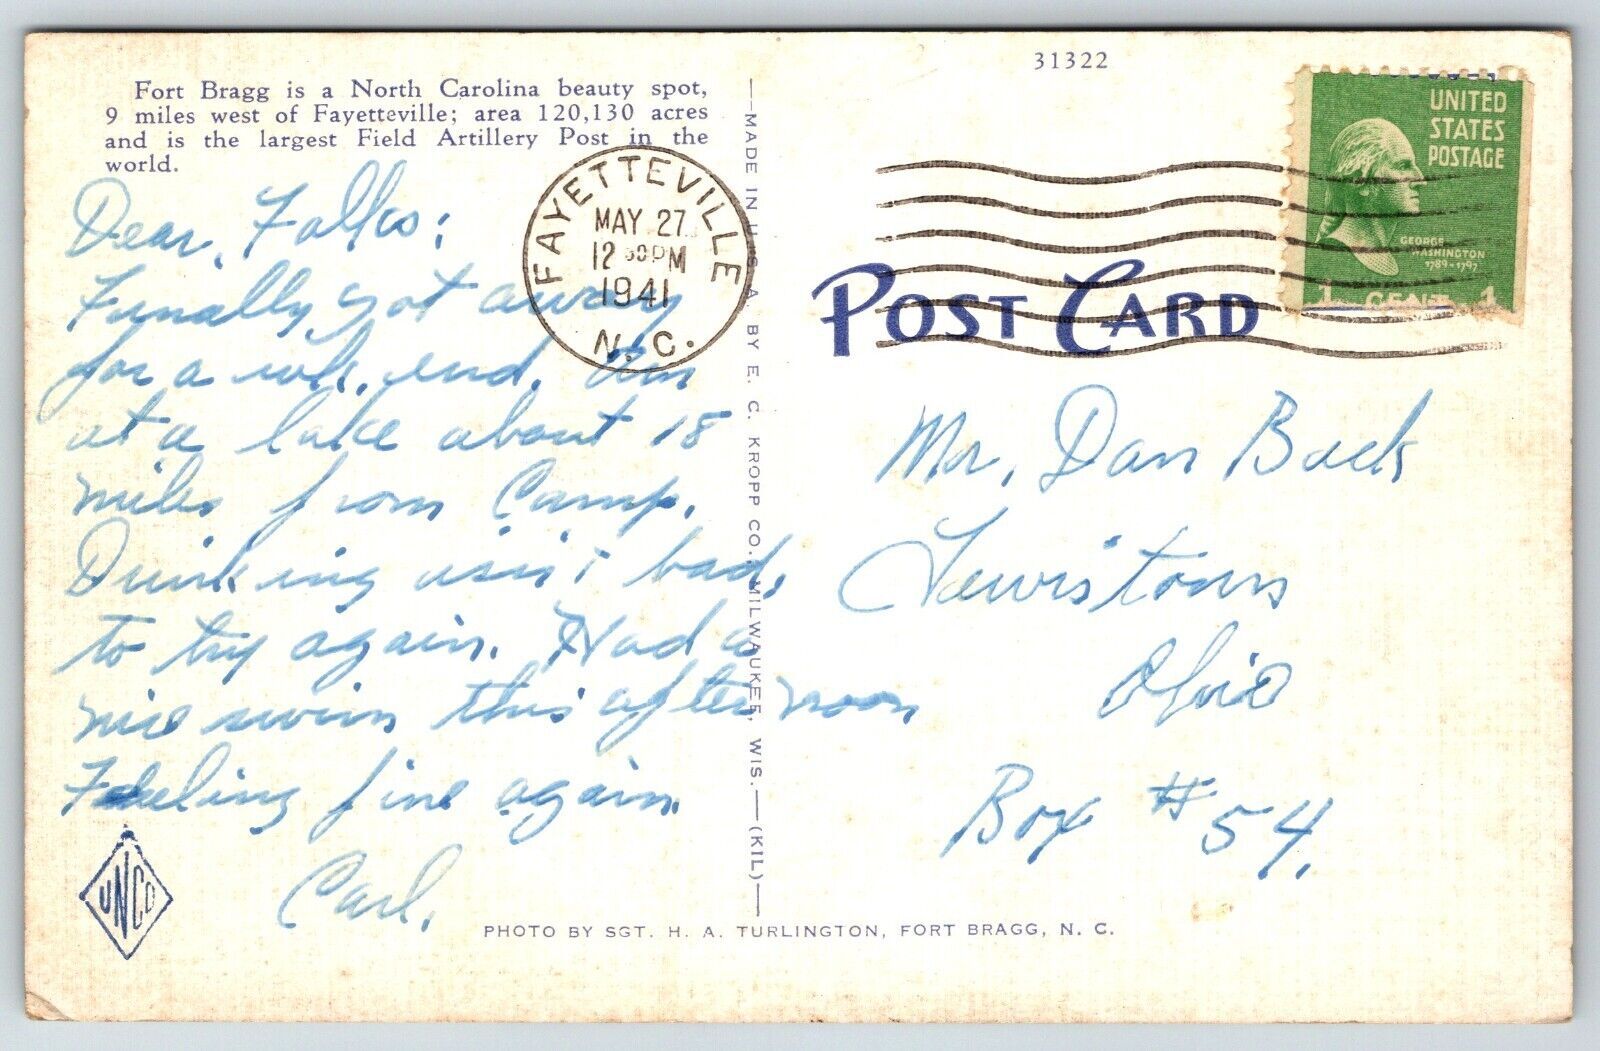 31322
Fort Bragg is a North Carolina beauty spot,
9 miles west of Fayetteville; area 120,130 acres
and is the largest Field Artillery Post in the
world.
Dear, Folks;
Finally got away
for a wk. end. Am
at a lake about 18
miles from Camp.
Drinking isn't bad,
to try again. Had a
nice swim this afternoon
Feeling fine again.
Carl.
UNCO
FAYETTEVILLE
MAY 27
12 30 PM
1941
N.C.
—MADE IN U.S.A. BY E. C. KROPP CO. MILWAUKEE, WIS.—(KIL)—
POST CARD
UNITED
STATES
POSTAGE
GEORGE
WASHINGTON
1789-1797
1 CENT 1
Mr, Dan Buck
Lewistown
Ohio
Box #54,
PHOTO BY SGT. H. A. TURLINGTON, FORT BRAGG, N. C.